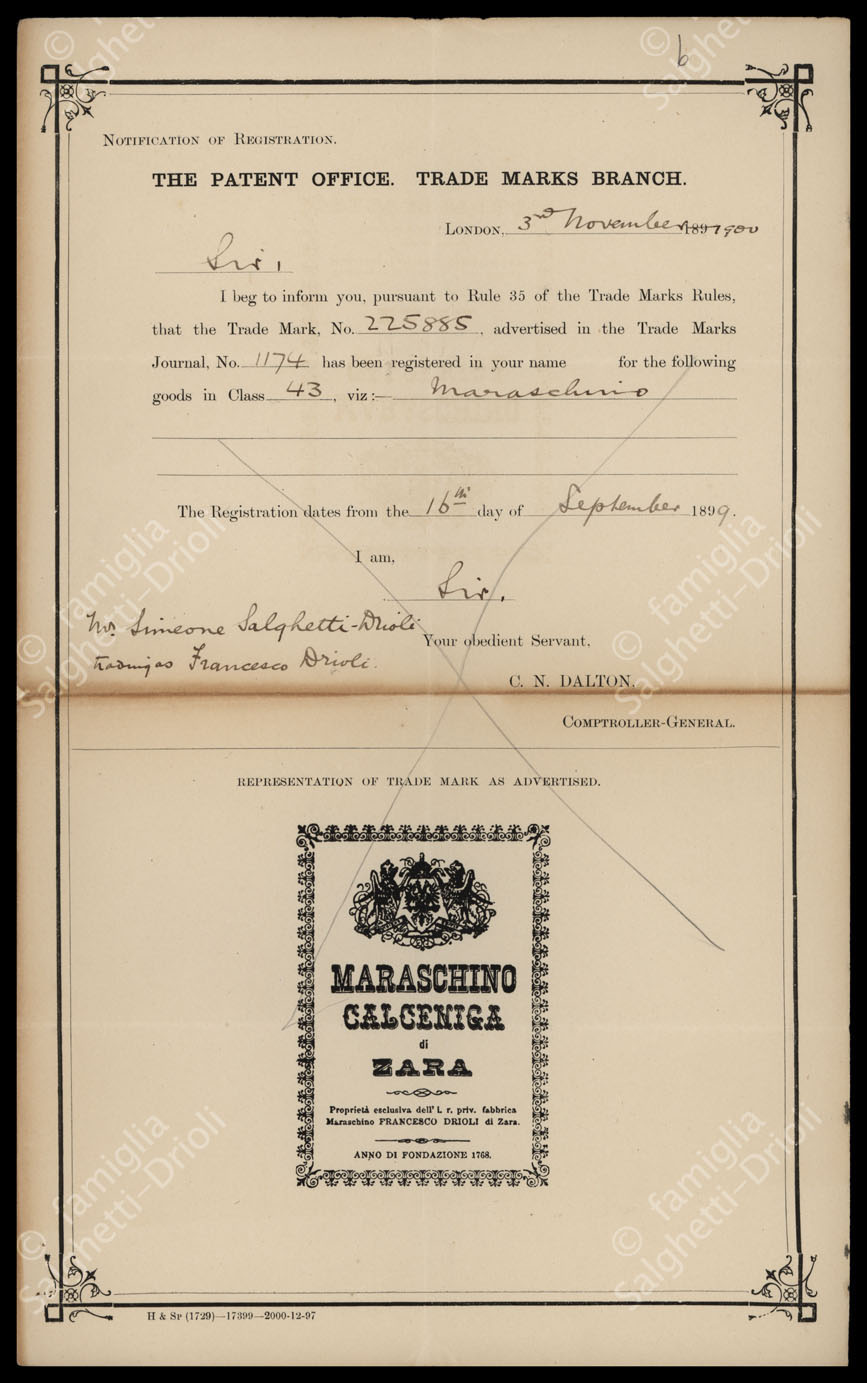 6
NOTIFICATION OF REGISTRATION.
THE PATENT OFFICE. TRADE MARKS BRANCH.
LONDON, 3rd November 1897 1900
Sir,
I beg to inform you, pursuant to Rule 35 of the Trade Marks Rules,
that the Trade Mark, No. 225885, advertised in the Trade Marks
Journal, No. 1174 has been registered in your name for the following
goods in Class 43, viz:— Maraschino
The Registration dates from the 16th day of September 1899.
I am,
Sir,
Mr Simeone Salghetti-Drioli
Your obedient Servant,
trading as Francesco Drioli.
C. N. DALTON,
COMPTROLLER-GENERAL.
REPRESENTATION OF TRADE MARK AS ADVERTISED.
MARASCHINO
CALCENIGA
di
ZARA
Proprietà esclusiva dell' i. r. priv. fabbrica
Maraschino FRANCESCO DRIOLI di Zara.
ANNO DI FONDAZIONE 1768.
H & SP (1729)—17399—2000-12-97
© famiglia
Salghetti-Drioli
© famiglia
Salghetti-Drioli
© famiglia
Salghetti-Drioli
© famiglia
Salghetti-Drioli